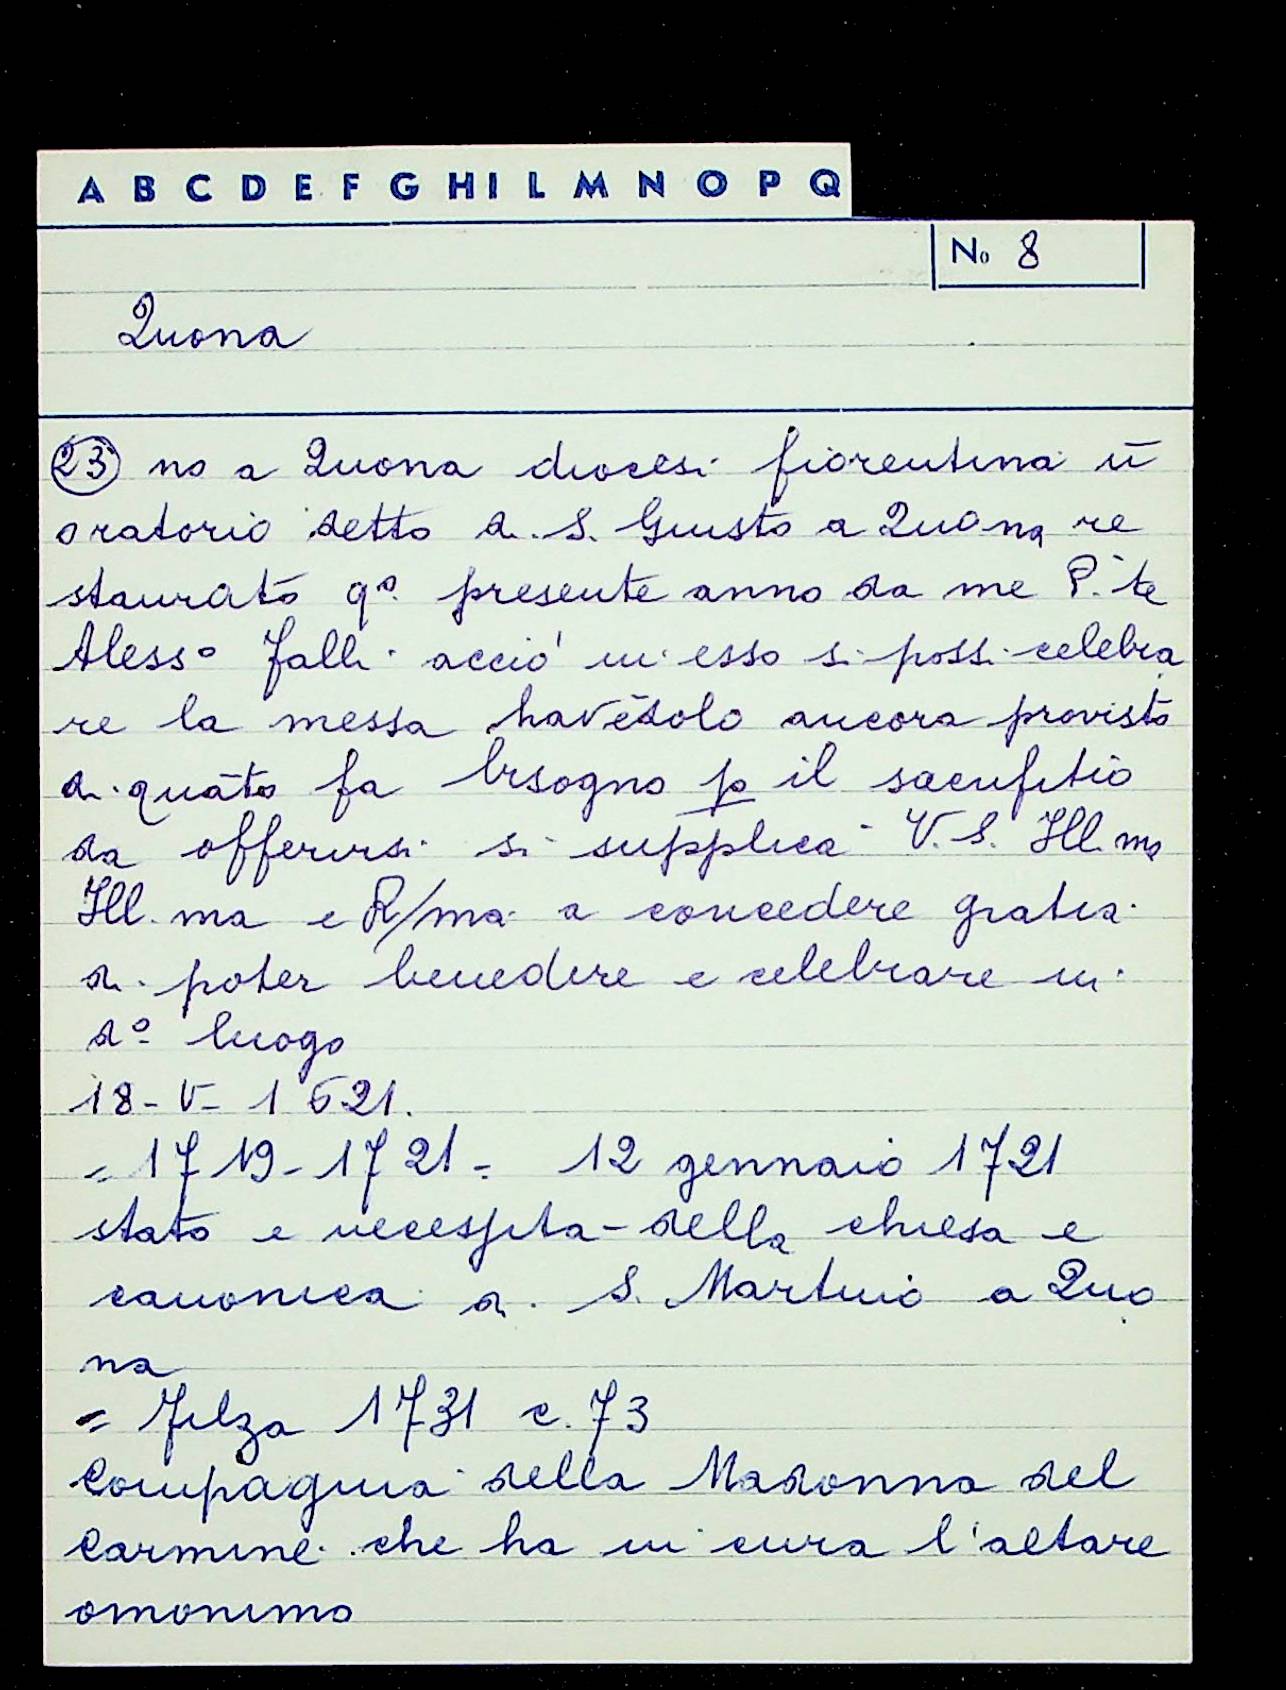 A B C D E F G H I L M N O P Q
No 8
Quona
23 no a Quona diocesi fiorentina ū
oratorio detto di S. Giusto a Quona re
staurato q.º presente anno da me P. te
Aless.º Falli acciò in esso si possi celebra
re la messa havēdolo ancora provisto
di quāto fa bisogno p il sacrifitio
da offerirsi si supplica V. S. Ill. ma
Ill. ma e R/ma a concedere gratia
di poter benedire e celebrare in
d.º luogo
18 - V - 1621.
= 1719 - 1721 = 12 gennaio 1721
stato e necessita - della chiesa e
canonica di S. Martino a Quo
na
= Filza 1731 c. 73
Compagnia della Madonna del
Carmine che ha in cura l'altare
omonimo